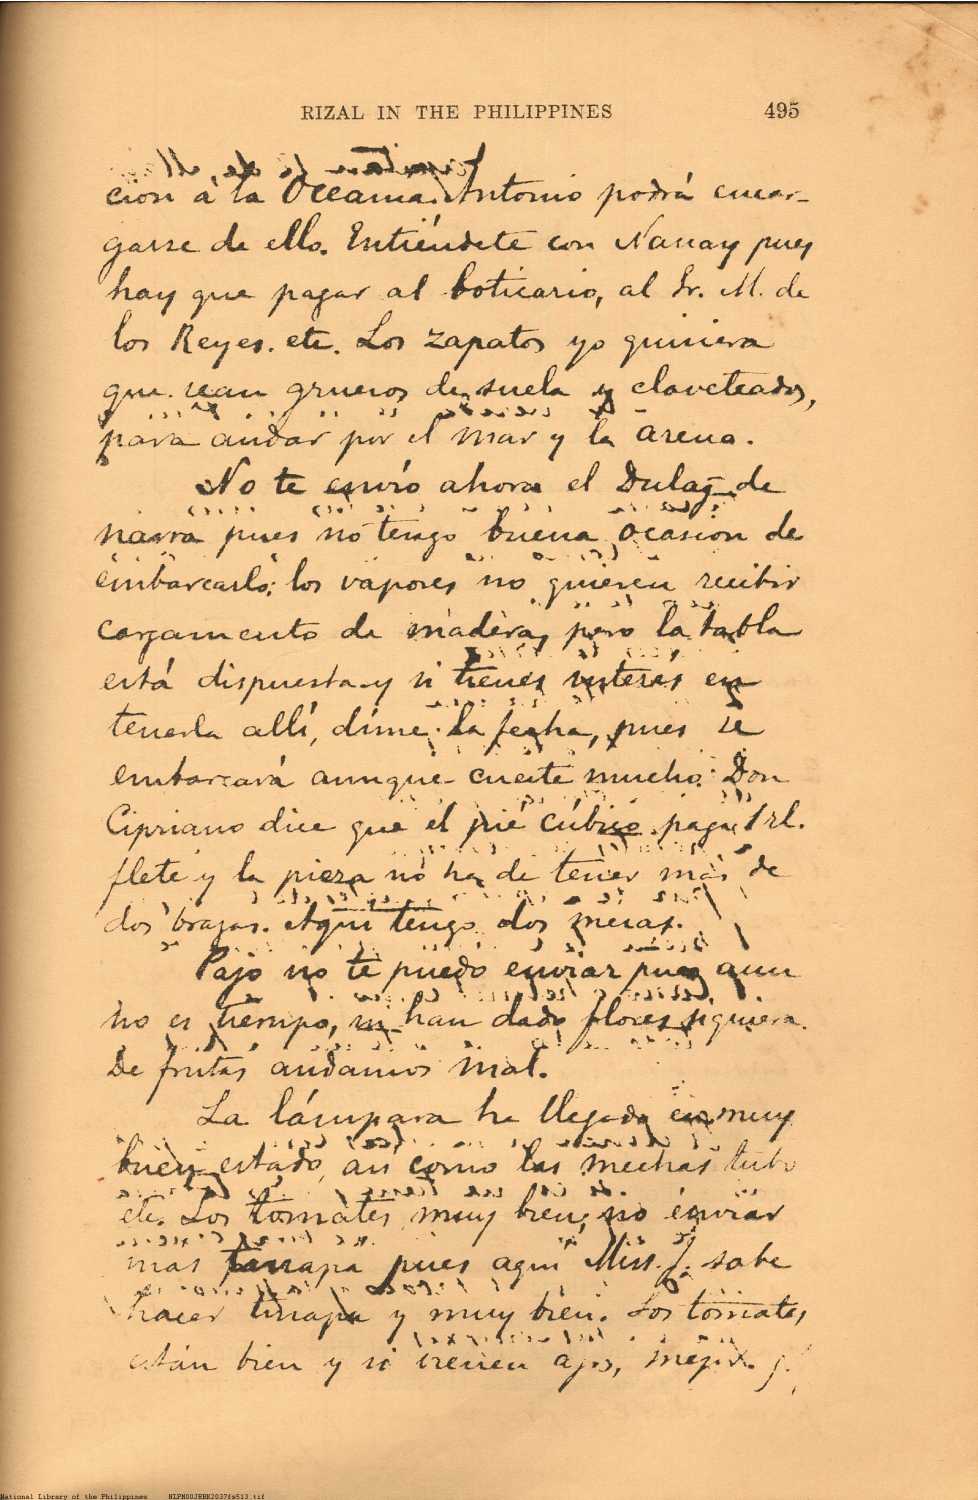 RIZAL IN THE PHILIPPINES 495
cion á la Oceania. Antonio podrá encar-
garse de ello. Entiéndete con Nanay pues
hay que pagar al boticario, al Sr. M. de
los Reyes. etc. Los zapatos yo quisiera
que sean gruesos de suela y claveteados,
para andar por el mar y la arena.
No te envío ahora el Dulag de
narra pues no tengo buena ocasion de
embarcarlo; los vapores no quieren recibir
cargamento de madera, pero la tabla
está dispuesta y si tienes interés en
tenerla allí, dime la fecha, pues se
embarcará aunque cueste mucho. Don
Cipriano dice que el pié cúbico paga 1 rl.
flete y la pieza no ha de tener más de
dos brazas. Aqui tengo dos mesas.
Pajo no te puedo enviar pues aun
no es tiempo, ni han dado flores siquiera.
De frutas andamos mal.
La lámpara ha llegado en muy
buen estado, asi como las mechas tubo
etc. Los tomates muy bien; no enviar
mas tinapa pues aqui Miss. J. sabe
hacer tinapa y muy bien. Los tomates
están bien y si vienen ajos, mejor.
National Library of the Philippines NLPN00JRBK20376s513.tif